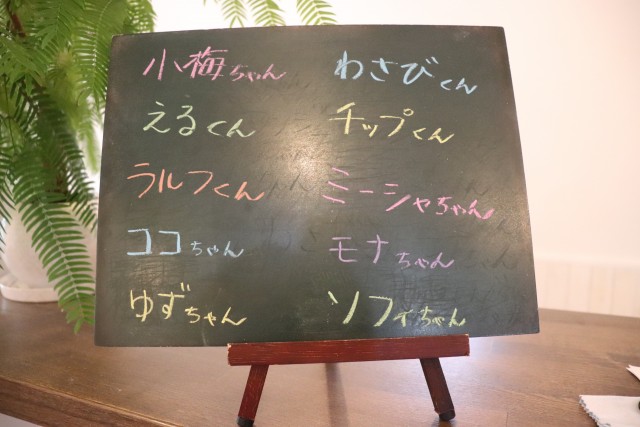 小梅ちゃん
えるくん
ラルフくん
ココちゃん
ゆずちゃん
わさびくん
チップくん
ミーシャちゃん
モナちゃん
ソフィちゃん